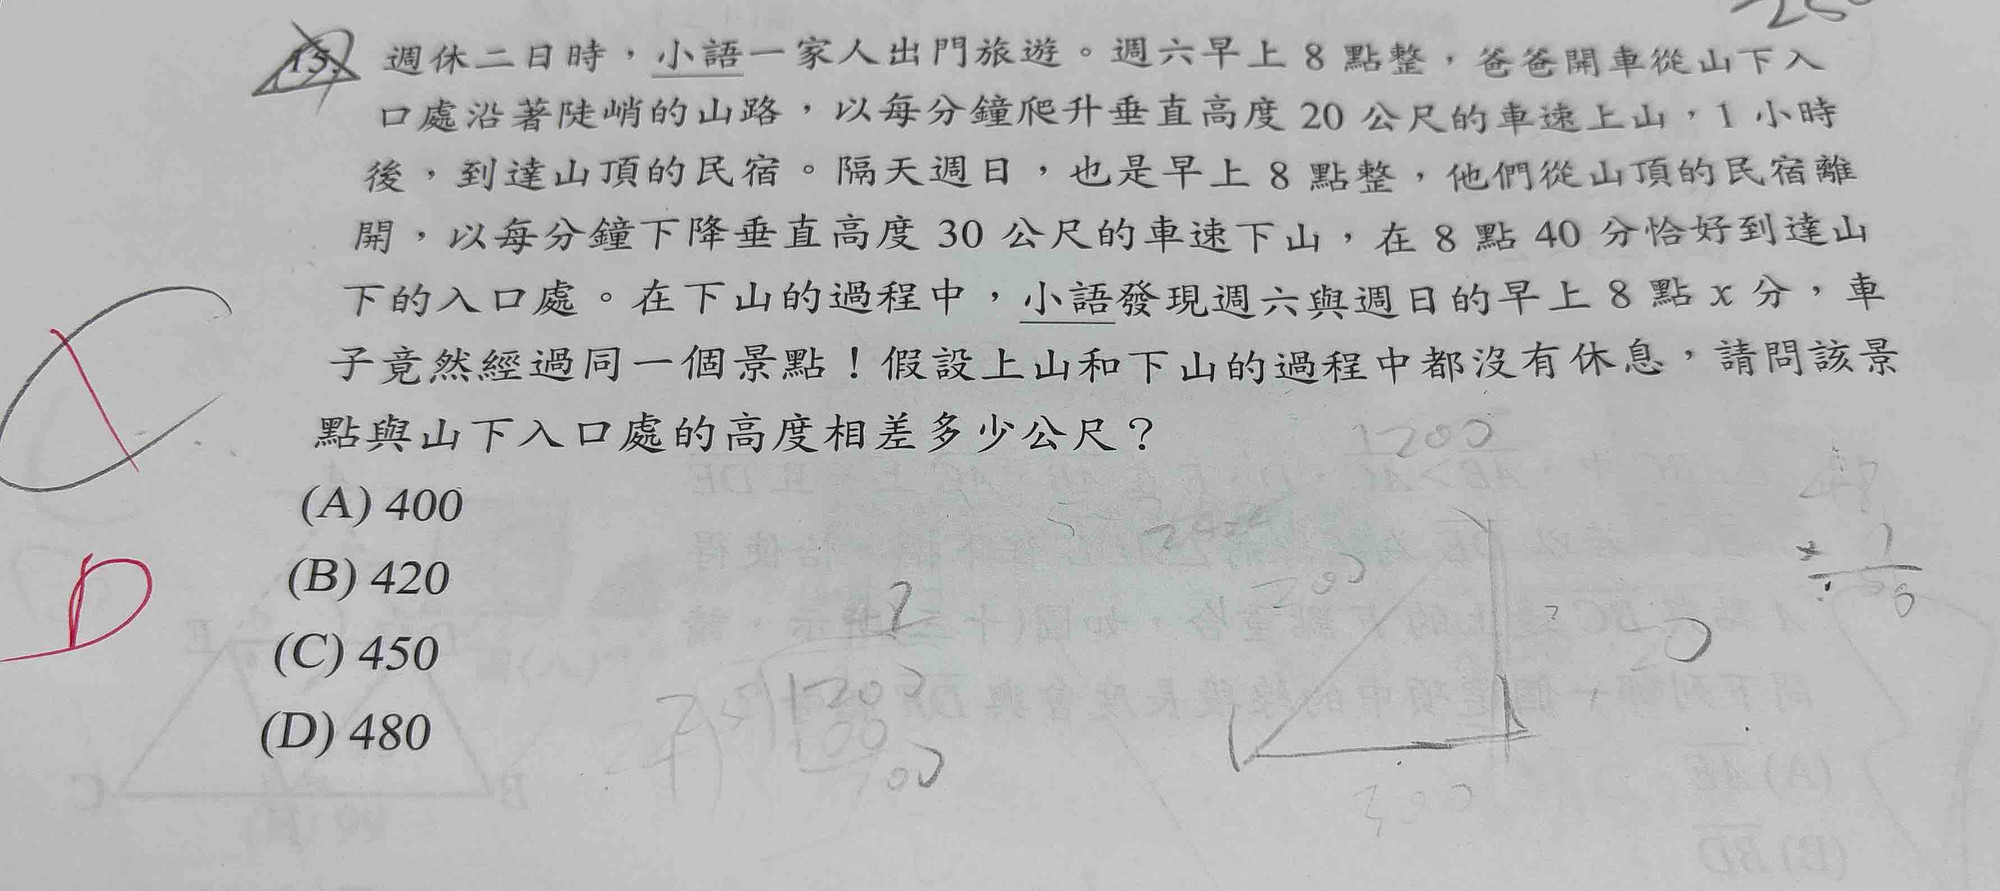 15. 週休二日時，小語一家人出門旅遊。週六早上 8 點整，爸爸開車從山下入
口處沿著陡峭的山路，以每分鐘爬升垂直高度 20 公尺的車速上山，1 小時
後，到達山頂的民宿。隔天週日，也是早上 8 點整，他們從山頂的民宿離
開，以每分鐘下降垂直高度 30 公尺的車速下山，在 8 點 40 分恰好到達山
下的入口處。在下山的過程中，小語發現週六與週日的早上 8 點 x 分，車
子竟然經過同一個景點！假設上山和下山的過程中都沒有休息，請問該景
點與山下入口處的高度相差多少公尺？
1200
(A) 400
(B) 420
D
(C) 450
(D) 480
300